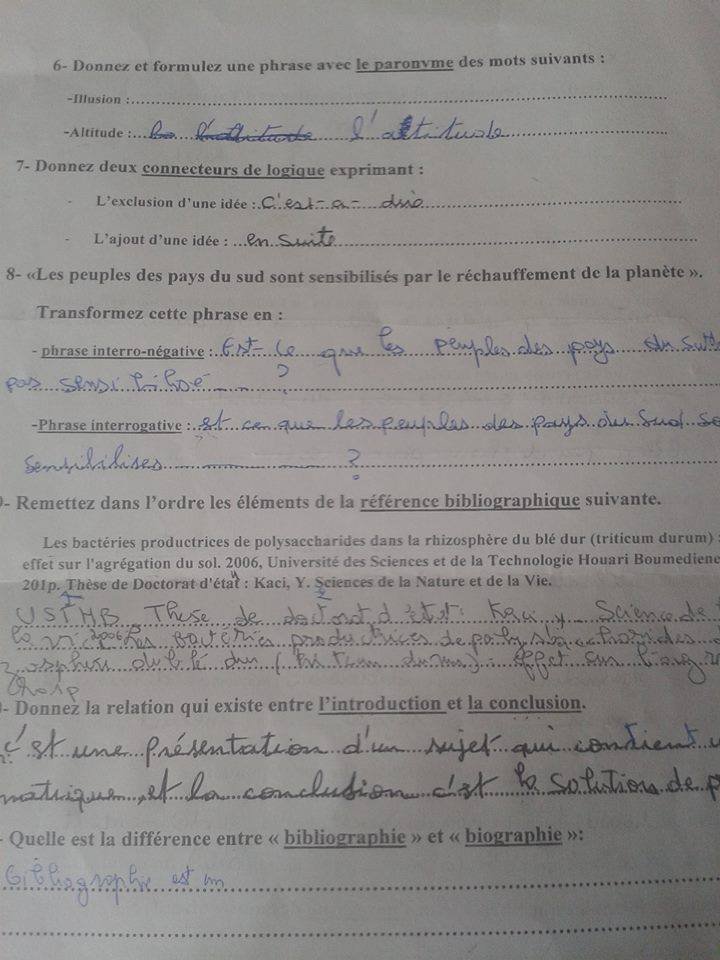 6- Donnez et formulez une phrase avec le paronyme des mots suivants :
-Illusion :
-Altitude : l'attitude
7- Donnez deux connecteurs de logique exprimant :
- L'exclusion d'une idée : C'est-a-dire
- L'ajout d'une idée : en suite
8- «Les peuples des pays du sud sont sensibilisés par le réchauffement de la planète ».
Transformez cette phrase en :
- phrase interro-négative : Est-ce que les peuples des pays du sud
pas sensibilisé ?
-Phrase interrogative : est ce que les peuples des pays du Sud so
Sensibilises ?
- Remettez dans l'ordre les éléments de la référence bibliographique suivante.
Les bactéries productrices de polysaccharides dans la rhizosphère du blé dur (triticum durum) :
effet sur l'agrégation du sol. 2006, Université des Sciences et de la Technologie Houari Boumediene
201p. Thèse de Doctorat d'état : Kaci, Y. Sciences de la Nature et de la Vie.
USTHB, These de doctorat d'état: Kaci y Science de
la vie 2006 les bacteries productrices de
du blé dur ( effet sur
- Donnez la relation qui existe entre l'introduction et la conclusion.
c'est une présentation d'un sujet qui contient
matique, et la conclusion c'est la solution de p
- Quelle est la différence entre « bibliographie » et « biographie »:
bibliographie est un